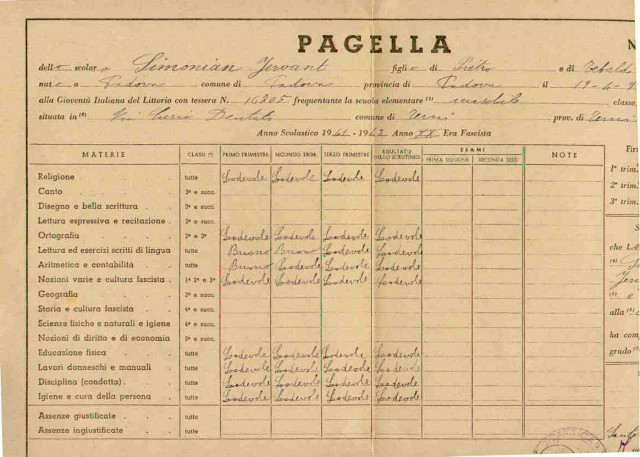 PAGELLA N
dell scolar Simonian Jervant figli di Pietro e di Tebaldi
nat a Padova comune di Padova provincia di Padova il 19-4-
alla Gioventù Italiana del Littorio con tessera N. 16205 frequentante la scuola elementare (1) maschile classe
situata in (2) Via Dentato comune di Terni prov. di Terni
Anno Scolastico 1941 - 1942 Anno XX Era Fascista
MATERIE CLASSI (*) PRIMO TRIMESTRE SECONDO TRIM. TERZO TRIMESTRE RISULTATO DELLO SCRUTINIO ESAME PRIMA SESSIONE SECONDA SESS. NOTE
Religione tutte Lodevole Lodevole Lodevole Lodevole
Canto 3ª e succ.
Disegno e bella scrittura 3ª e succ.
Lettura espressiva e recitazione 3ª e succ.
Ortografia 2ª e 3ª Lodevole Lodevole Lodevole Lodevole
Lettura ed esercizi scritti di lingua tutte Buono Buono Lodevole Lodevole
Aritmetica e contabilità tutte Buono Lodevole Lodevole Lodevole
Nozioni varie e cultura fascista 1ª 2ª e 3ª Lodevole Lodevole Lodevole Lodevole
Geografia 3ª e succ.
Storia e cultura fascista 4ª e succ.
Scienze fisiche e naturali e igiene 4ª e succ.
Nozioni di diritto e di economia 5ª e succ.
Educazione fisica tutte Lodevole Lodevole Lodevole Lodevole
Lavori donneschi e manuali tutte Lodevole Lodevole Lodevole Lodevole
Disciplina (condotta) tutte Lodevole Lodevole Lodevole Lodevole
Igiene e cura della persona tutte Lodevole Lodevole Lodevole Lodevole
Assenze giustificate tutte
Assenze ingiustificate tutte
Fir
1° trim.
2° trim.
3° trim.
S
che l
alla (3)
ha com
grado (1)